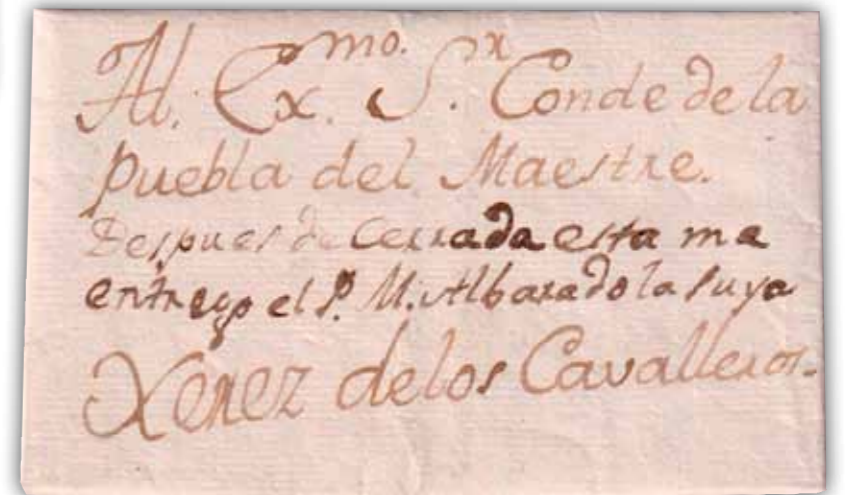 Al. Exmo. Sr. Conde de la
Puebla del Maestre.
Despues de cerrada esta me
entrego el P. M. Albarado la suya
Xerez de los Cavalleros.